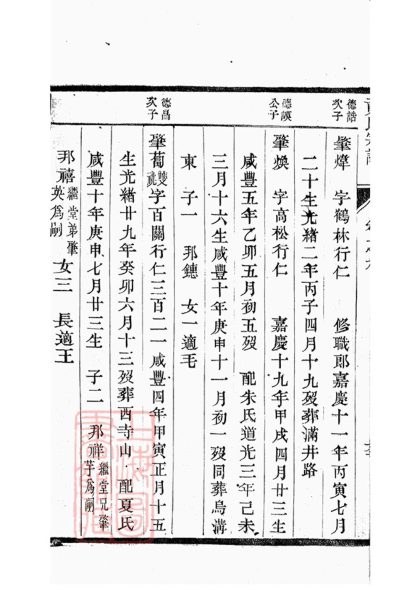 德誥次子
肇煒 字鶴林行仁 修職郎嘉慶十一年丙寅七月
二十生光緒二年丙子四月十九歿葬滿井路
德謨公子
肇煥 字高松行仁 嘉慶十九年甲戌四月廿三生
咸豐五年乙卯五月初五歿 配朱氏道光三年己未
三月十六生咸豐十年庚申十一月初一歿同葬烏溝
東 子一 邦鏸 女一適毛
德昌次子
肇蔔 字百關行仁三百二一咸豐四年甲寅正月十五
生光緒廿九年癸卯六月十三歿葬西寺山 配夏氏
咸豐十年庚申七月廿三生 子二 邦祥繼堂兄肇芋為嗣
邦禧繼堂弟肇英為嗣 女三 長適王